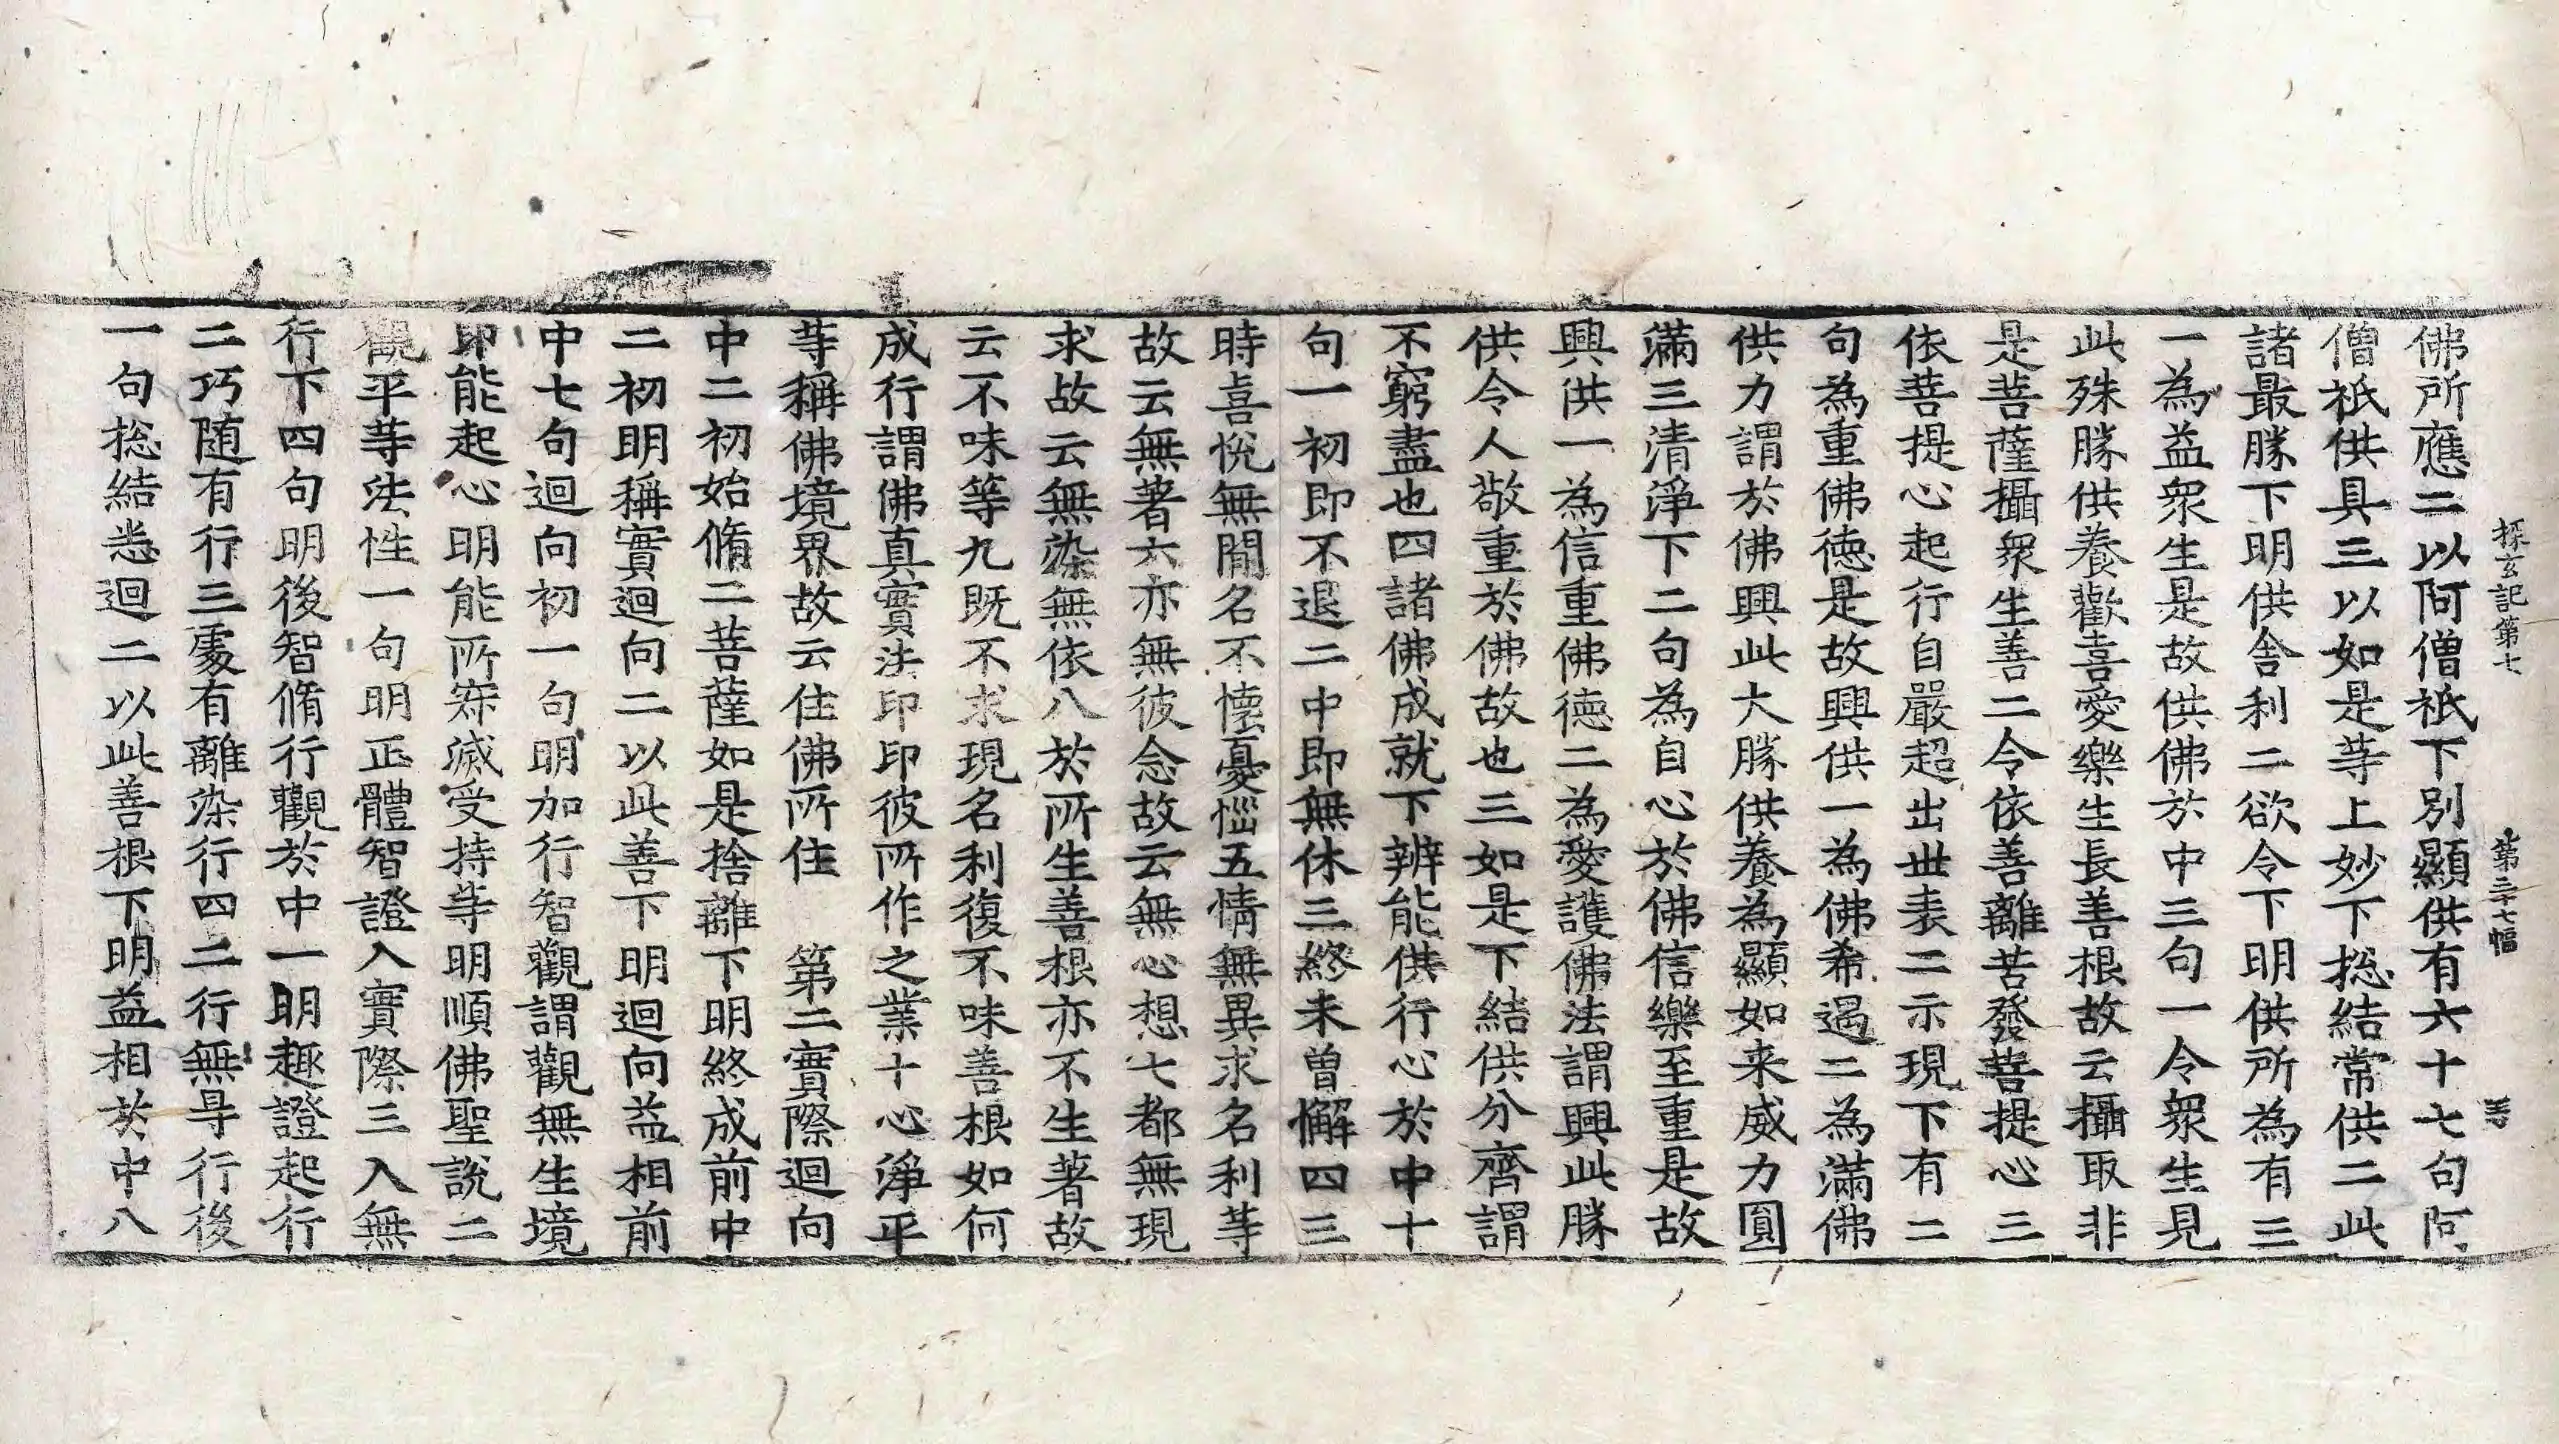 探玄記第七　第三十七幅
佛所應二以阿僧祇下別顯供有六十七句阿
僧祇供具三以如是等上妙下捴結常供二此
諸最勝下明供舎利二欲令下明供所為有三
一為益衆生是故供佛於中三句一令衆生見
此殊勝供養歡喜愛樂生長善根故云攝取非
是菩薩攝衆生善二令依善離苦發菩提心三
依菩提心起行自嚴超出世表二示現下有二
句為重佛德是故興供一為佛希遇二為滿佛
供力謂於佛興此大勝供養為顯如来威力圓
滿三清淨下二句為自心於佛信樂至重是故
興供一為信重佛德二為愛護佛法謂興此勝
供令人敬重於佛故也三如是下結供分齊謂
不窮盡也四諸佛成就下辨能供行心於中十
句一初即不退二中即無休三終未曾懈四三
時喜悅無間名不懷憂惱五情無異求名利等
故云無著六亦無彼念故云無心想七都無現
求故云無染無依八於所生善根亦不生著故
云不味等九既不求現名利復不味善根如何
成行謂佛真實法印印彼所作之業十心淨平
等稱佛境界故云住佛所住　第二實際迴向
中二初始脩二菩薩如是捨離下明終成前中
二初明稱實迴向二以此善下明迴向益相前
中七句迴向初一句明加行智觀謂觀無生境
即能起心明能所寂滅受持等明順佛聖說二
觀平等法性一句明正體智證入實際三入無
行下四句明後智脩行觀於中一明趣證起行
二巧随有行三處有離染行四二行無㝵行後
一句捴結悉迴二以此善根下明益相於中八